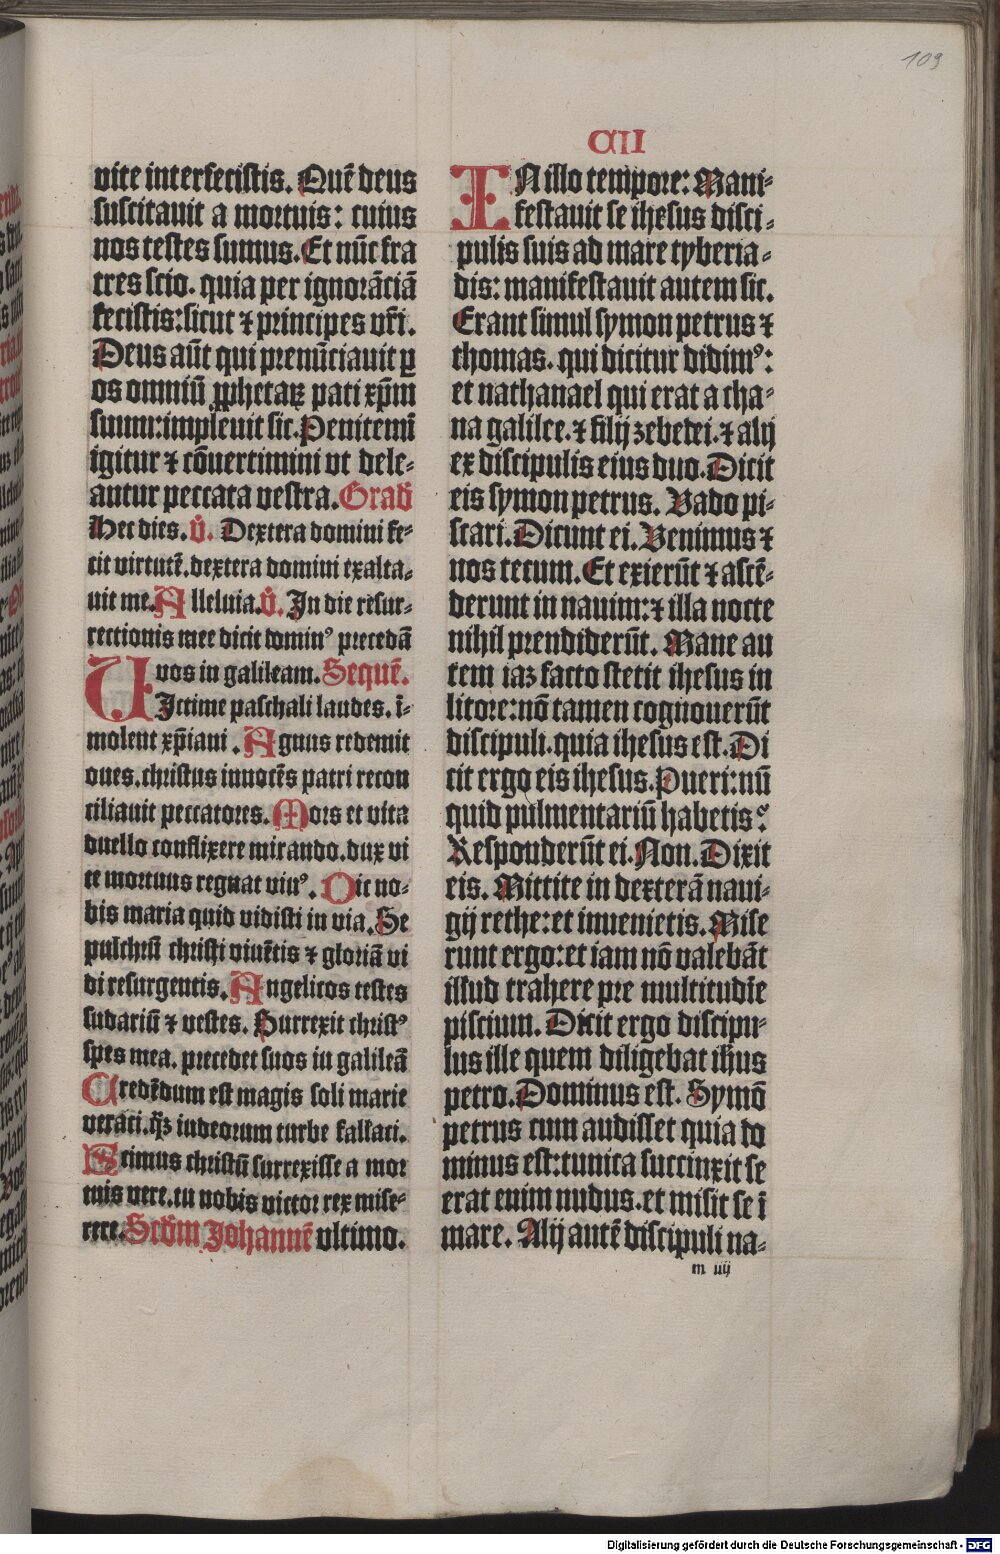 109
CII
vite interfecistis. Quē deus
suscitauit a mortuis: cuius
nos testes sumus. Et nūc fra
tres scio. quia per ignorātiā
fecistis: sicut ⁊ principes vr̄i.
Deus aūt qui prenūciauit ꝑ
os omniū ꝓphetaꝝ pati xp̄m
suum: impleuit sic. Penitemī
igitur ⁊ cōuertimini vt dele⸗
antur peccata vestra. Grad̄
Hec dies. V̄. Dextera domini fe⸗
cit virtutē. dextera domini exalta⸗
uit me. Alleluia. V̄. In die resur⸗
rectionis mee dicit dominꝰ precedā
vos in galileam. Sequē.
VIctime paschali laudes. ī⸗
molent xp̄iani. Agnus redemit
oues. christus innocēs patri recon
ciliauit peccatores. Mors et vita
duello conflixere mirando. dux vi
te mortuus regnat viuꝰ. Dic no⸗
bis maria quid vidisti in via. Se
pulchrū christi viuētis ⁊ gloriā vi
di resurgentis. Angelicos testes
sudariū ⁊ vestes. Surrexit christꝰ
spes mea. precedet suos in galileā
Credēdum est magis soli marie
veraci. q̄ꝫ iudeorum turbe fallaci.
Scimus christū surrexisse a mor
tuis vere. tu nobis victor rex mise⸗
rere. Scd̄m Johannē vltimo.
IN illo tempore: Mani⸗
festauit se ihesus disci⸗
pulis suis ad mare tyberia⸗
dis: manifestauit autem sic.
Erant simul symon petrus ⁊
thomas. qui dicitur didimꝰ:
et nathanael qui erat a cha⸗
na galilee. ⁊ filij zebedei. ⁊ alij
ex discipulis eius duo. Dicit
eis symon petrus. Vado pi⸗
scari. Dicunt ei. Venimus ⁊
nos tecum. Et exierūt ⁊ ascē⸗
derunt in nauim: ⁊ illa nocte
nihil prendiderūt. Mane au
tem iaꝫ facto stetit ihesus in
litore: nō tamen cognouerūt
discipuli. quia ihesus est. Di
cit ergo eis ihesus. Pueri: nū
quid pulmentariū habetis?
Responderūt ei. Non. Dixit
eis. Mittite in dexterā naui⸗
gij rethe: et inuenietis. Mise
runt ergo: et iam nō valebāt
illud trahere pre multitudīe
piscium. Dicit ergo discipu⸗
lus ille quem diligebat ihūs
petro. Dominus est. Symō
petrus cum audisset quia do
minus est: tunica succinxit se
erat enim nudus. et misit se ī
mare. Alij autē discipuli na⸗
m iiij
Digitalisierung gefördert durch die Deutsche Forschungsgemeinschaft - DFG